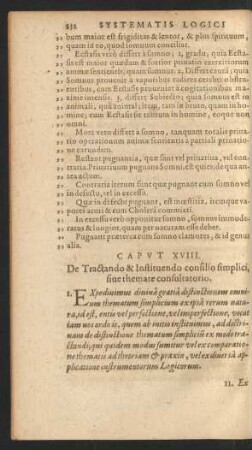 232 SYSTEMATIS LOGICI
„ bum maior est frigiditas & lentor, & plus spirituum,
„ quam id eo, quod somnum conciliat.
„ Ecstasis verò differt à somno; 1. gradu, quia Ecsta-
„ sis est maior quædam & fortior priuatio exercitiorum
„ animæ sentientis; quam somnus. 2. Differt causa; quia
„ Somnus prouenit à vaporibus radices cerebri obsiden-
„ tibus, cum Ecstasis proueniat à cogitationibus ma-
„ ximè intensis. 3. differt Subiecto, quia Somnus est in
„ animali, quà animal; itaq; tam in bruto, quam in ho-
„ mine; cum Ecstasis sit tantum in homine, eoque non
„ omni.
„ Mors verò differt à somno, tanquam totalis priua-
„ tio operationum animæ sentientis à partiali priuatio-
„ ne earundem.
„ Restant pugnantia, quæ sunt vel priuatiua, vel con-
„ traria. Priuatiuum pugnans Somni est, quies, de qua an-
„ tea actum.
„ Contraria iterum sunt quæ pugnant cum somno vel
„ in defectu, vel in excessu.
„ Quæ in defectu pugnant, est insomnia, itemque va-
„ pores acuti & cum Cholera commixti.
„ In excessu verò opponitur Somno, somnus immode-
„ ratus & longior, quam per naturam esse debet.
„ Pugnant præterea cum somno clamores, & id genus
„ alia.
CAPVT XVIII.
De Tractando & Instituendo consilio simplici,
siue themate consultatorio.
1. EXpediuimus diuinâ gratiâ distinctionem omnium
thematum simplicium ex ipsâ rerum natu-
râ, id est, entis vel perfectione, vel imperfectione, vocat
iam nos ordo is, quem ab initio instituimus, ad doctri-
nam de distinctione thematum simplicis ex modo tra-
ctandi, qui quidem modus sumitur vel ex comparatio-
ne thematis ad theoriam & praxin, vel ex diuersâ ap-
plicatione instrumentorum Logicorum.
11. Ex